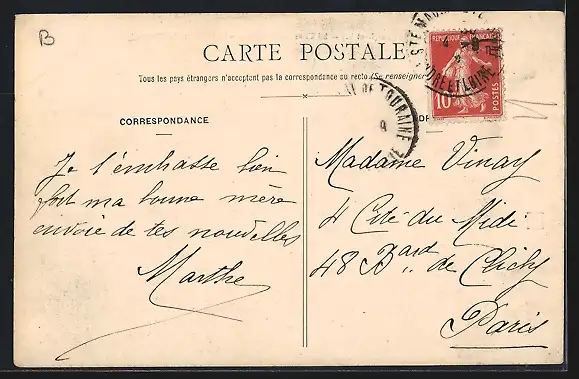 B
CARTE POSTALE
Tous les pays étrangers n'acceptent pas la correspondance au recto (Se renseigner
CORRESPONDANCE
RÉPUBLIQUE FRANÇAISE
10
POSTES
STE MAU
INDRE ET LOIRE
DE TOURAINE
Je t'embrasse bien
fort ma bonne mère
envoie de tes nouvelles
Marthe
Madame Vinay
4 Cité du Midi
48 Bard de Clichy
Paris